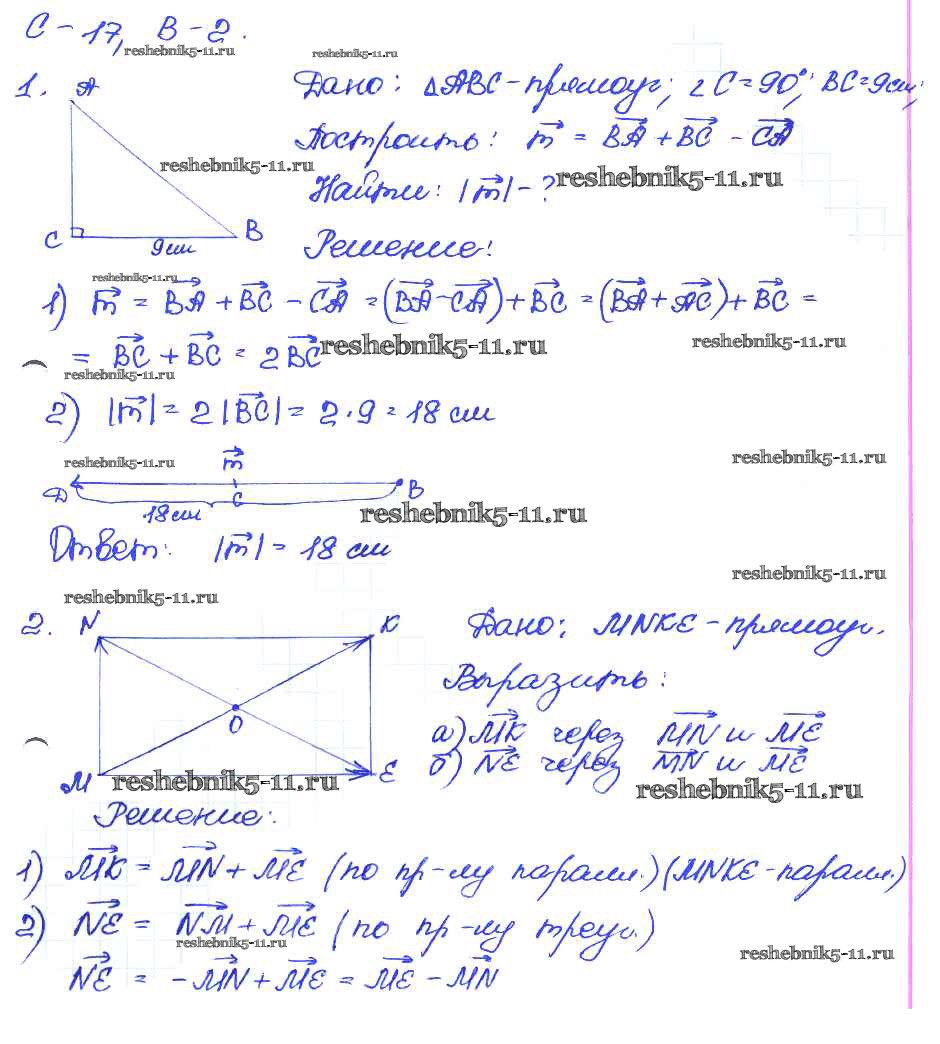 С-17, В-2.
reshebnik5-11.ru reshebnik5-11.ru
1. A Дано: ΔABC - прямоуг; ∠C = 90°; BC = 9 см;
Построить: m⃗ = BA⃗ + BC⃗ - CA⃗
reshebnik5-11.ru
Найти: |m⃗| - ? reshebnik5-11.ru
C 9см B Решение:
reshebnik5-11.ru
1) m⃗ = BA⃗ + BC⃗ - CA⃗ = (BA⃗ - CA⃗) + BC⃗ = (BA⃗ + AC⃗) + BC⃗ =
= BC⃗ + BC⃗ = 2BC⃗ reshebnik5-11.ru reshebnik5-11.ru
reshebnik5-11.ru
2) |m⃗| = 2|BC⃗| = 2·9 = 18 см
reshebnik5-11.ru m⃗ reshebnik5-11.ru
D C B
18 см reshebnik5-11.ru
Ответ: |m⃗| = 18 см
reshebnik5-11.ru
reshebnik5-11.ru
2. N K Дано: MNKE - прямоуг.
Выразить:
O а) MK⃗ через MN⃗ и ME⃗
б) NE⃗ через MN⃗ и ME⃗
M reshebnik5-11.ru E reshebnik5-11.ru
Решение:
1) MK⃗ = MN⃗ + ME⃗ (по пр-лу паралл.) (MNKE - паралл.)
2) NE⃗ = NM⃗ + ME⃗ (по пр-лу треуг.)
reshebnik5-11.ru reshebnik5-11.ru
NE⃗ = -MN⃗ + ME⃗ = ME⃗ - MN⃗